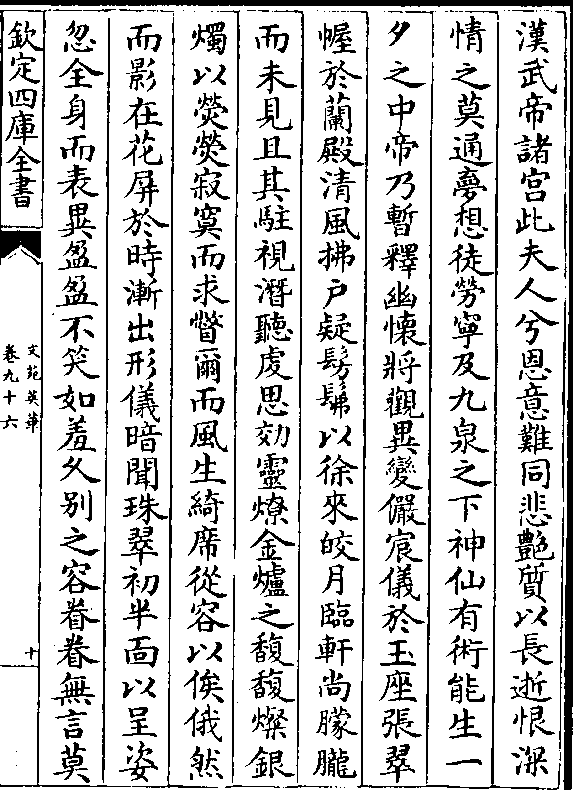 漢武帝諸宫此夫人兮恩意難同悲艷質以長逝恨深
情之莫通夢想徒勞寧及九泉之下神仙有術能生一
夕之中帝乃暫釋幽懷將觀異變儼宸儀於玉座張翠
幄於蘭殿清風拂户疑髣髴以徐來皎月臨軒尚朦朧
而未見且其駐視潛聽虔思効靈燎金爐之馥馥燦銀
燭以熒熒寂寞而求瞥爾而風生綺席從容以俟俄然
而影在花屏於時漸出形儀暗聞珠翠初半面以呈姿
忽全身而表異盈盈不笑如羞久别之容眷眷無言莫
欽定四庫全書
文苑英華
卷九十六
十